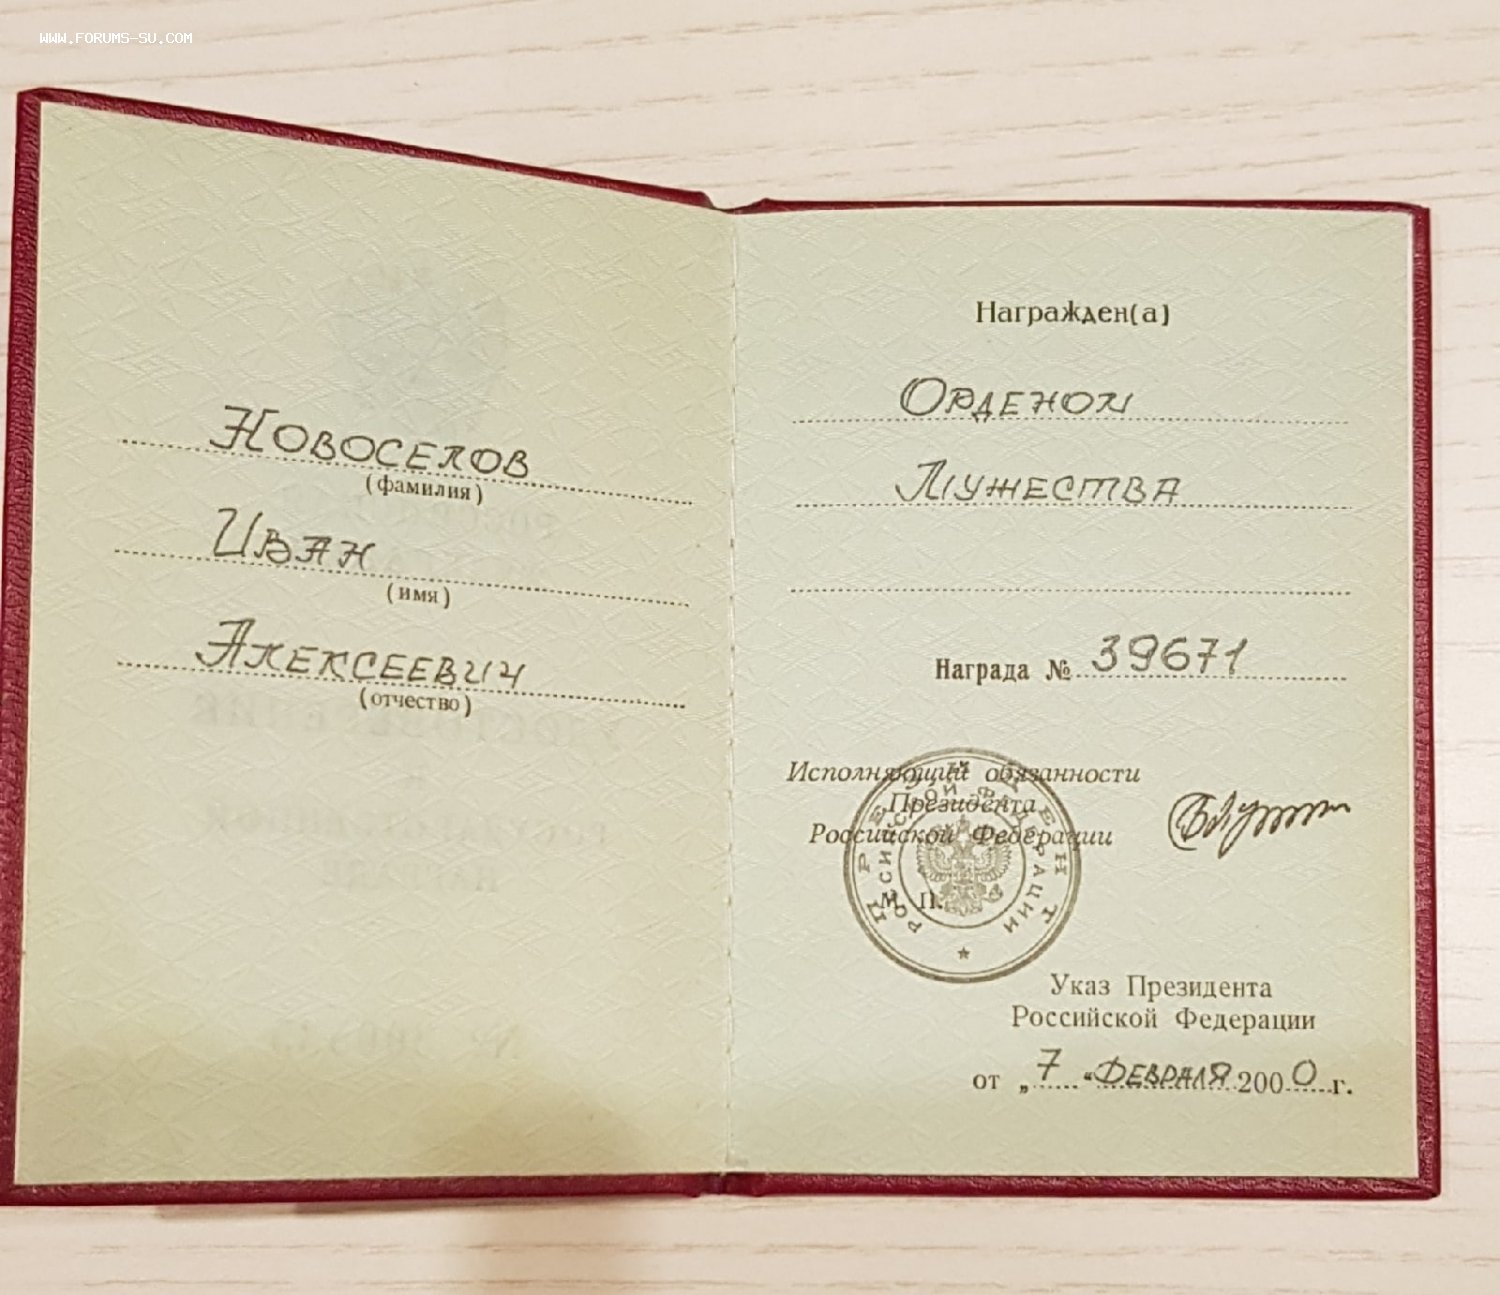 WWW.FORUMS-SU.COM
Новоселов
(фамилия)
Иван
(имя)
Алексеевич
(отчество)
Награжден(а)
Орденом
Мужества
Награда № 39671
Исполняющий обязанности
Президента
Российской Федерации
М. П.
ПРЕЗИДЕНТ
РОССИЙСКОЙ ФЕДЕРАЦИИ
Указ Президента
Российской Федерации
от „7“ февраля 2000 г.